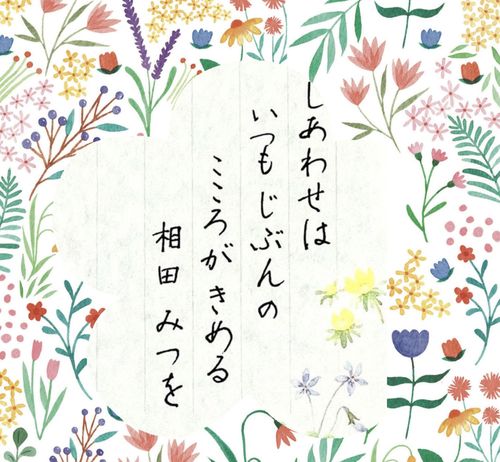 しあわせは
いつもじぶんの
こころがきめる
相田みつを